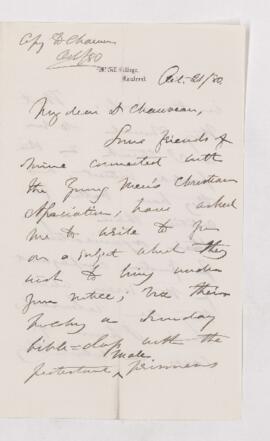 Copy Dr Chauveau
Oct/80
McGill College,
Montreal.
Oct. 21/80
My dear Dr Chauveau,
Some friends of
mine connected with
the Young Men's Christian
Association, have asked
me to write to you
on a subject which they
wish to bring under
your notice; viz their
having a Sunday
bible=class with the
male
protestant ^ prisoners